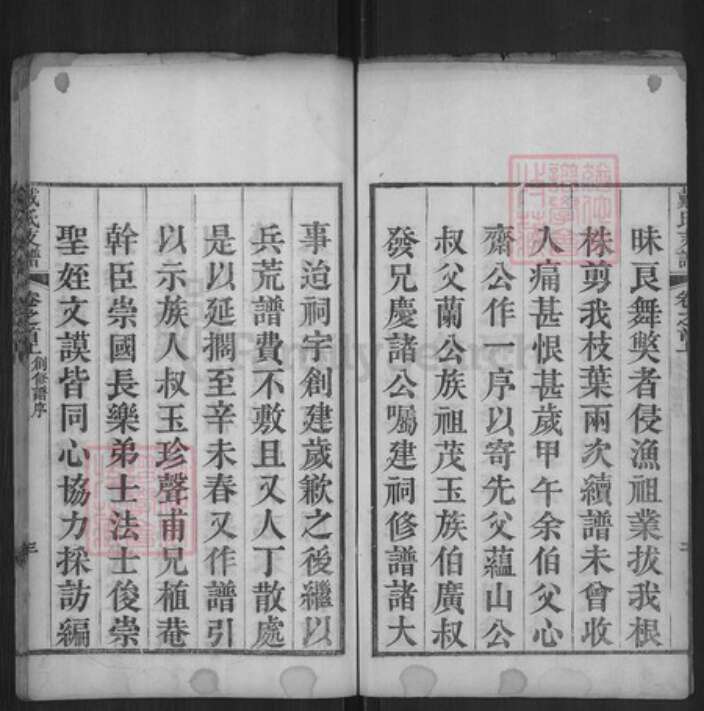 昧良舞獘者侵漁祖業拔我根
株剪我枝葉兩次續譜未曾收
入痛甚恨甚歲甲午余伯父心
齋公作一序以寄先父蘊山公
叔父蘭公族祖茂玉族伯廣叔
發兄慶諸公囑建祠修譜諸大
事迨祠宇創建歲歉之後繼以
兵荒譜費不敷且又人丁散處
是以延擱至辛未春又作譜引
以示族人叔玉珍聲甫兄植菴
幹臣崇國長樂弟士法士俊崇
聖姪文謨皆同心協力採訪編
戴氏支譜
卷之首上
創修譜序
三
FamilySearch